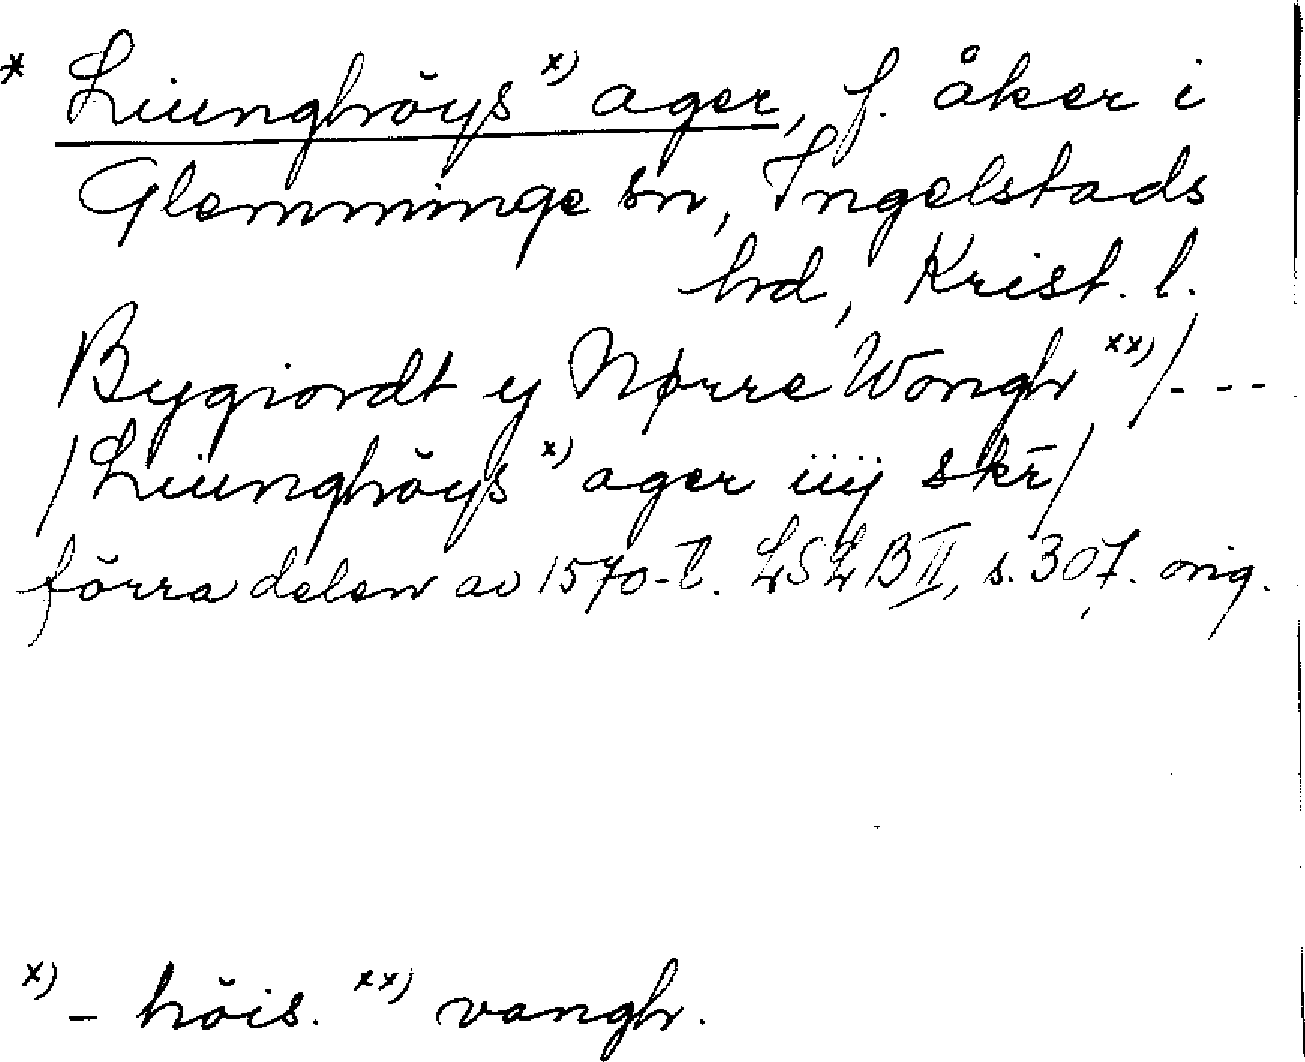 * Liunghöys x) ager, f. åker i
Glemminge sn, Ingelstads
hrd, Krist. l.
Bygiordt y Nørre Wongh xx) / - - -
/ Liunghöys x) ager iiij skr̄ /
förra delen av 1570-t. LSLB II, s. 307. orig.
x) - höis. xx) vangh.